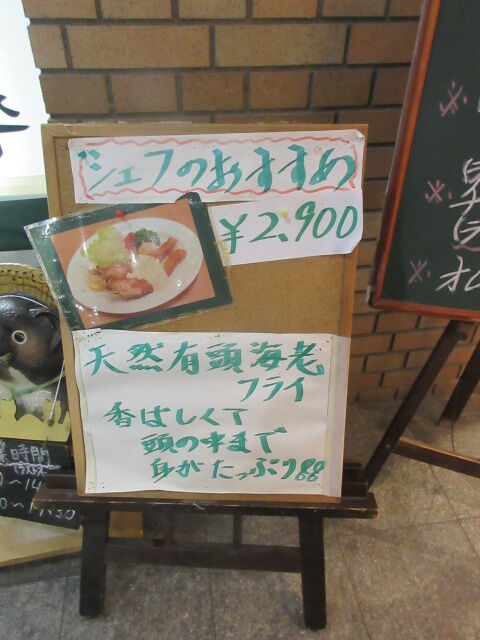 シェフのおすすめ
¥2,900
天然有頭海老
フライ
香ばしくて
頭の中まで
身がたっぷり
業時間